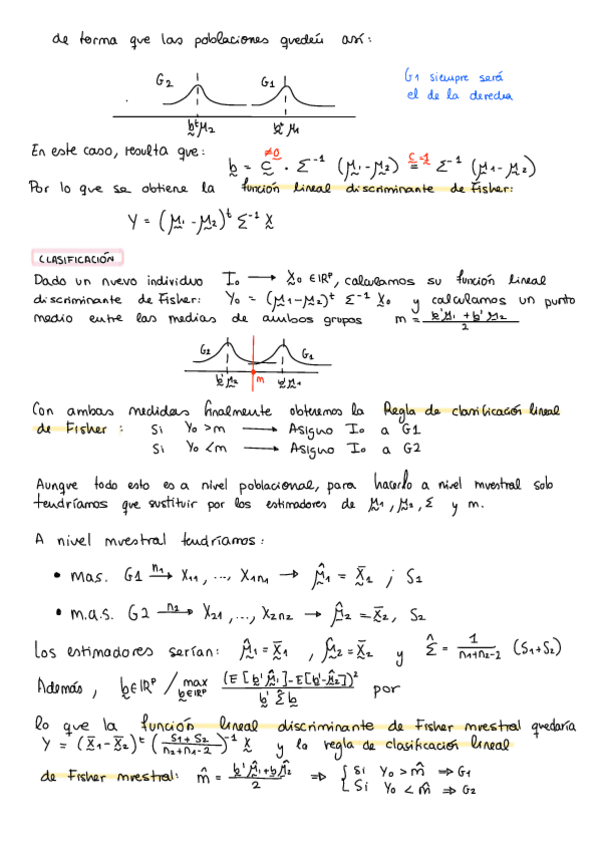 de forma que las poblaciones queden así:
G2 G1
G1 siempre será
el de la derecha
b^t μ2 b^t μ1
En este caso, resulta que: b = c · Σ^-1 (μ1-μ2) = Σ^-1 (μ1-μ2)
≠0 c=1
Por lo que se obtiene la función lineal discriminante de Fisher:
Y = (μ1-μ2)^t Σ^-1 X
CLASIFICACIÓN
Dado un nuevo individuo I0 → X0 ∈ IR^p, calculamos su función lineal
discriminante de Fisher: Y0 = (μ1-μ2)^t Σ^-1 X0 y calculamos un punto
medio entre las medias de ambos grupos m = (b'μ1 + b'μ2)/2
G2 G1
b'μ2 m b'μ1
Con ambas medidas finalmente obtenemos la Regla de clasificación lineal
de Fisher: Si Y0 > m → Asigno I0 a G1
Si Y0 < m → Asigno I0 a G2
Aunque todo esto es a nivel poblacional, para hacerlo a nivel muestral solo
tendríamos que sustituir por los estimadores de μ1, μ2, Σ y m.
A nivel muestral tendríamos:
• mas. G1 n1→ X11, ..., X1n1 → μ̂1 = X̄1 ; S1
• m.a.s. G2 n2→ X21, ..., X2n2 → μ̂2 = X̄2, S2
Los estimadores serían: μ̂1 = X̄1 , μ̂2 = X̄2 y Σ̂ = 1/(n1+n2-2) (S1+S2)
Además, b ∈ IR^p / max b∈IR^p (E[b'μ̂1]-E[b'μ̂2])²/(b' Σ̂ b) por
lo que la función lineal discriminante de Fisher muestral quedaría
Y = (X̄1-X̄2)^t ((S1+S2)/(n1+n2-2))^-1 X y la regla de clasificación lineal
de Fisher muestral: m̂ = (b'μ̂1+b'μ̂2)/2 ⇒ { Si Y0 > m̂ ⇒ G1
Si Y0 < m̂ ⇒ G2